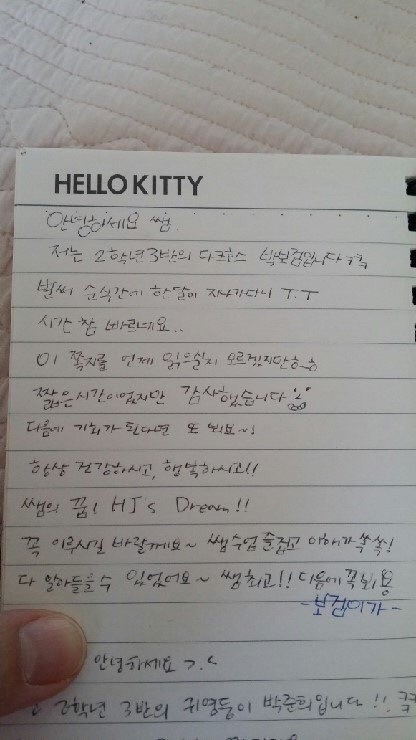 HELLO KITTY
안녕하세요 쌤.
저는 2학년3반의 다크호스 박보검입니다 ㅋㅋ
벌써 순식간에 한달이 지나가다니 T.T
시간 참 빠르네요..
이 쪽지를 언제 읽으실지 모르겠지만ㅎㅎ
짧은시간이었지만 감사했습니다
다음에 기회가 된다면 또 뵈요~!
항상 건강하시고, 행복하시고!!
쌤의 꿈! HJ's Dream!!
꼭 이루시길 바랄께요~ 쌤수업 즐겁고 이해가 쏙쏙!
다 알아들을수 있었어요~ 쌤최고!! 다음에 꼭뵈용
-보검이가-
안녕하세요 >.<
2학년 3반의 귀염둥이 박준희입니다!! 큭큭